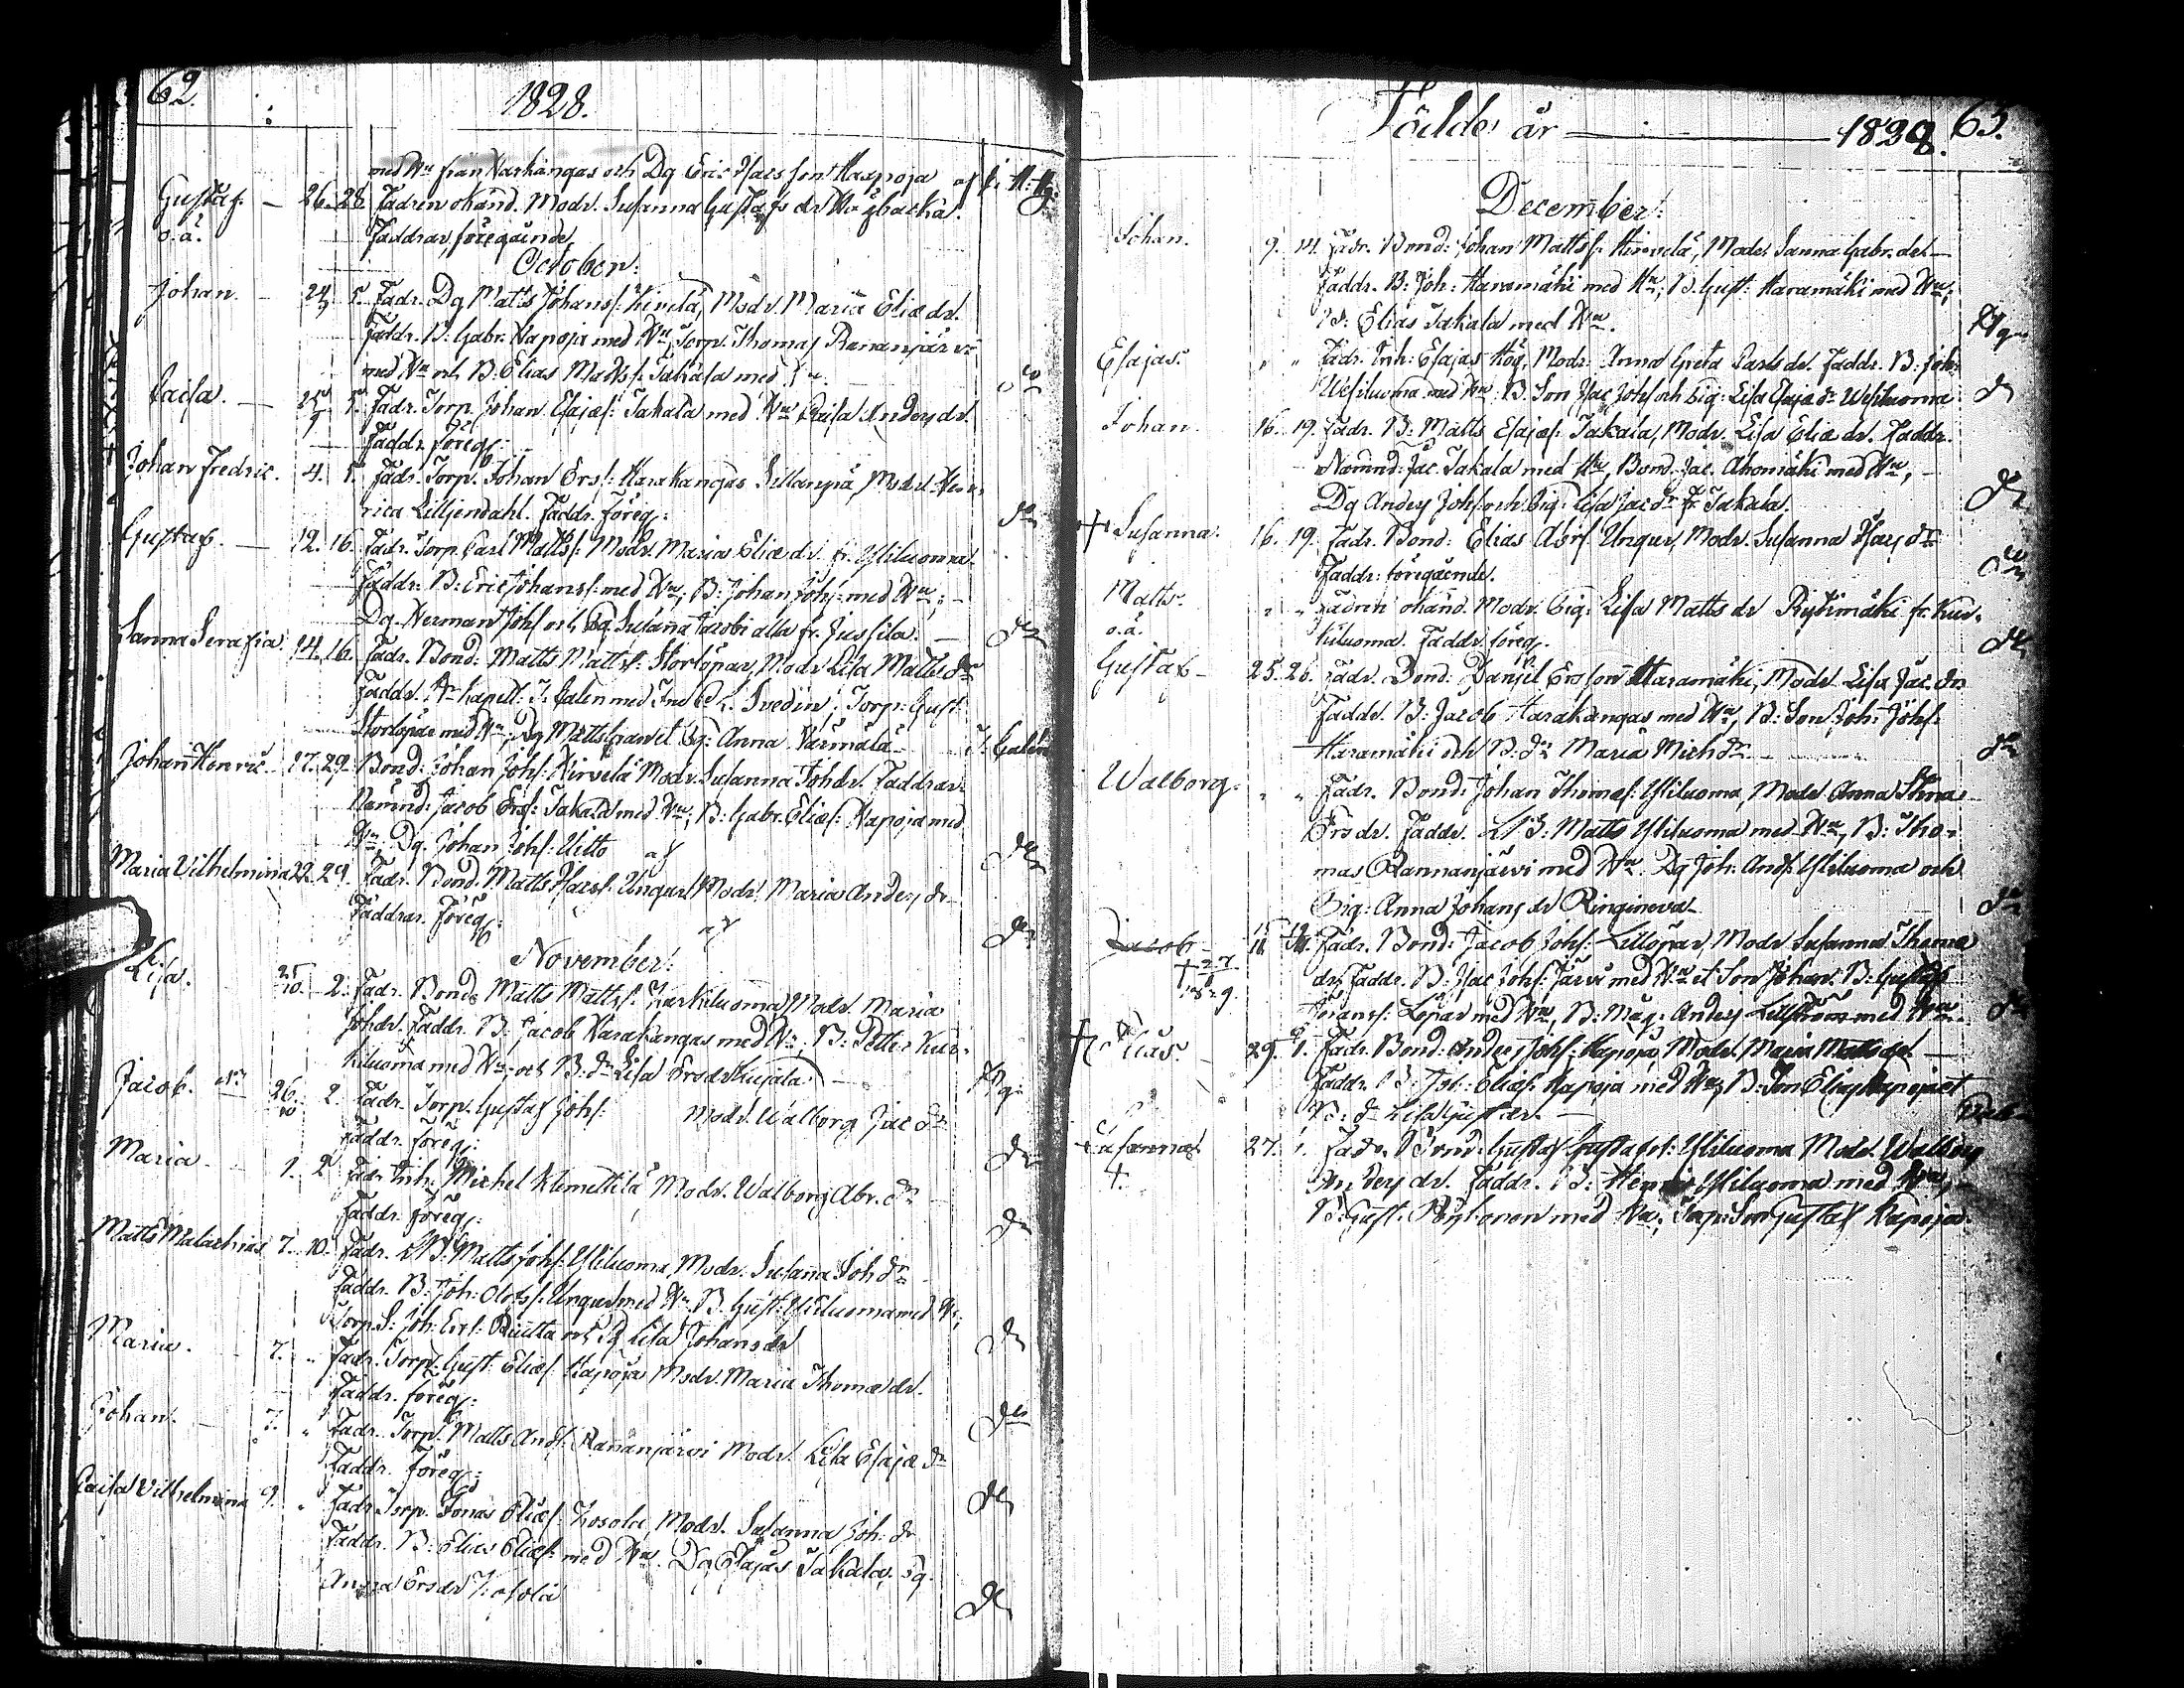 62.
1828.
med Hu från Harkangas och Dg Eric Isacs son Kaapoja
Gustaf. — 26. 28. Fadren okänd. Modr. Susanna Gustafs dr
o.ä. Faddrar föregående
October:
Johan. — 5. Fadr. Dg Matts Johansf: Kivelä, Modr. Maria Eliæ dr.
Faddr. B. Gabr. Kapoja med Hu, Torp. Thomas Rananjärvi
med Hu och B: Elias Mattsf. Takala med
Caisa. — 5. Fadr. Torp. Johan Esajæf: Takala med Hu Caisa Anders dr.
Faddr. föreg:
Johan Fredric. 4. 5. Fadr. Torp. Johan Ersf: Harakangas Modr. Hen
rica Lilljendahl. Faddr. föreg:
Gustaf. — 12. 16. Fadr. Torp. Carl Mattsf: Modr. Maria Eliæ dr. fr. Yliluoma.
Faddr: B: Eric Johansf: med Hu; B: Johan Johf: med Hu; —
Dg. Herman Johf och Pig Susanna Jacobi alla fr. Jussila. —
Sanna Serafia. 14. 16. Fadr. Bond: Matts Mattsf: Storlöpar, Modr Lisa Matts dr
Faddr. Kapell: J. Galen med Svedin; Torp: Gust.
Storlöpar med Hu, Dg Matts et Pig: Anna J: Galen
Johan Henric 17. 29. Bond: Johan Johf: Hirvelä Modr. Susanna Johdr. Faddrar
Nämnd: Jacob Ersf: Takala med Hu; B: Gabr. Eliæf: Kapoja med
Hu; Dg. Johan Johf: Uitto
Maria Vilhelmina 22. 29. Fadr. Bond. Matts Isacsf: Ungur, Modr. Maria Anders dr
Faddrar. Föreg:
November:
Lisa. 25/10. 2. Fadr. Bond: Matts Mattsf: Kurkiluoma, Modr. Maria
Johdr. Faddr. B: Jacob Harakangas med Hu; B: Petter Kur-
kiluoma med Hu; och B: dr Lisa Ersdr Kujala
Jacob. 26/10 2. Fadr. Torp. Gustaf Johf: Modr. Walborg Jac dr
Faddr. föreg:
Maria. 1. 2. Fadr. Inh: Michel Klemettilä Modr. Walborg Abr. dr
Faddr. föreg:
Matts Malachias 7. 10. Fadr. Matts Johf: Yliluoma, Modr. Susanna Joh dr
Faddr. B. Joh: Olofsf: Ungur med Hu. B. Gust: Yliluoma med Hu;
Torp S: Joh. Ersf: och Pg Lisa Johansdr
Maria. 7. „ Fadr. Torp: Gust: Eliæf: Kapoja Modr. Maria Thomæ dr.
Faddr. föreg:
Johan. — 7. „ Fadr. Torp. Matts Andf: Rananjärvi Modr. Lisa Esajæ dr
Faddr. föreg:
Caisa Vilhelmina 9. „ Fadr. Torp. Jonas Eliæf: Kosola, Modr. Susanna Joh: dr
Faddr. B: Elias Eliæf: med Hu. Dg Esajas Takala,
Anna Ersdr Kosola
Födde år — 1828. 63.
December:
Johan. 9. 14. Fadr. Bond: Johan Mattsf: Hirvelä, Modr Sanna Gabr. del —
Faddr. B: Joh: Haramäki med Hu; B. Gust: Haramäki med Hu;
B: Elias Takala med Hu.
Esajas. „ „ Fadr. Inh: Esajas Hög, Modr: Anna Greta Carls dr. Faddr. B: Joh:
Wesiluoma med Hu; B. Son Isac Johf och Pig: Lisa Esajæ dr Wesiluoma
Johan. 16. 19. Fadr. B: Matts Esajæf: Takala, Modr. Lisa Eliæ dr. Faddr.
Nämnd: Jac. Takala med Hu, Bond. Jac. Ahomäki med Hu, —
Dg Anders Johf och Pig: Lisa Jac dr fr Takala.
+ Susanna. 16. 19. Fadr. Bond: Elias Abrf: Ungur, Modr. Susanna Isacs dr
Faddr: föregående.
Matts. „ „ Fadren okänd. Modr. Pig: Lisa Matts dr Ryhimäki fr. Kur-
o.ä. kiluoma. Faddr. föreg.
Gustaf — 25. 26. Fadr. Bond: Daniel Ersson Haramäki, Modr. Lisa Jac. dr
Faddr. B: Jacob Harakangas med Hu, B: Son Joh: Johf:
Haramäki och B: dr Maria Mich dr
Walborg. „ „ Fadr. Bond: Johan Thomæf: Yliluoma, Modr Anna
Ersdr. Faddr. Matts Yliluoma med Hu, B: Tho-
mas Rannanjärvi med Hu. Dg Joh: Andf: Yliluoma och
Pig: Anna Johans dr Ringineva
Jacob — Fadr. Bond: Jacob Johf: Lillöpar, Modr Susanna Thomæ
dr. Faddr. B: Isac Johf: Järvi med Hu et Son Johan. B: Gustaf
Johansf: Löpar med Hu, B: Måg: Anders med Hu
+ Elias. — 29. 1. Fadr. Bond: Anders Johf: Kapoja, Modr. Maria Matts dr. —
Faddr. B: Joh: Eliæf: Kapoja med Hu, B: Son Elias Kapoja et
B: dr Lisa Gustaf dr. —
Susanna 27. 1. Fadr. Bond: Gustaf Gustafsf: Yliluoma Modr. Walborg
+. Anders dr. Faddr. B: Henric Yliluoma med Hu, —
B: Gust. med Hu; Torp: Son Gustaf Kapoja.